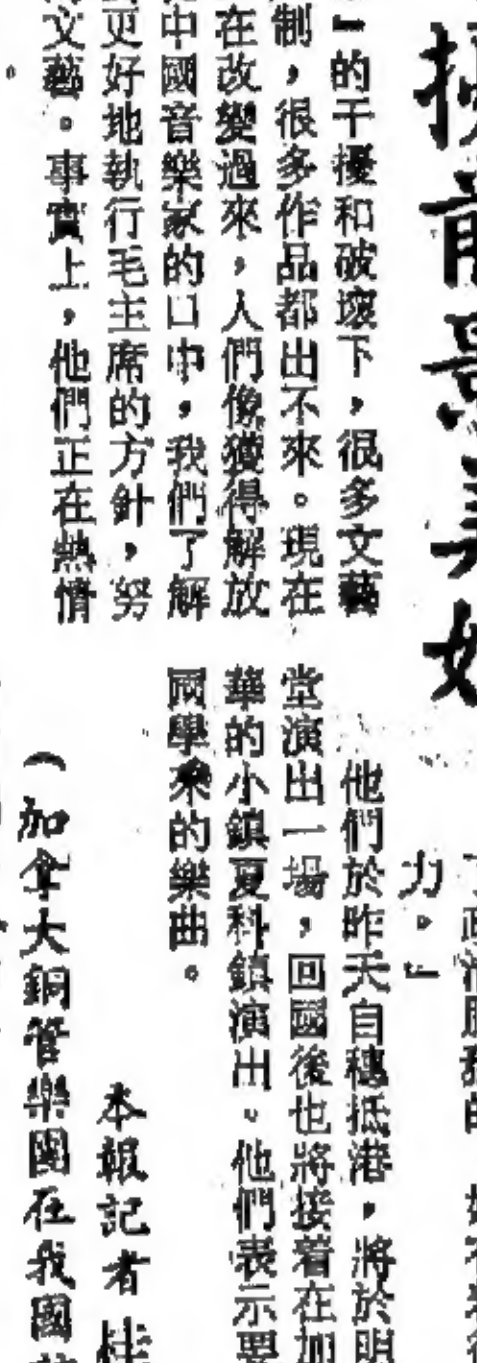 前景美好
」的干擾和破壞下，很多文藝
制，很多作品都出不來。現在
在改變過來，人們像獲得解放
中國音樂家的口中，我們了解
更好地執行毛主席的方針，努
文藝。事實上，他們正在熱情
。
力。」
他們於昨天自穗抵港，將於明
堂演出一場，回國後也將接着在加
華的小鎮夏科鎮演出。他們表示要
同學來的樂曲。
本報記者
（加拿大銅管樂團在我國